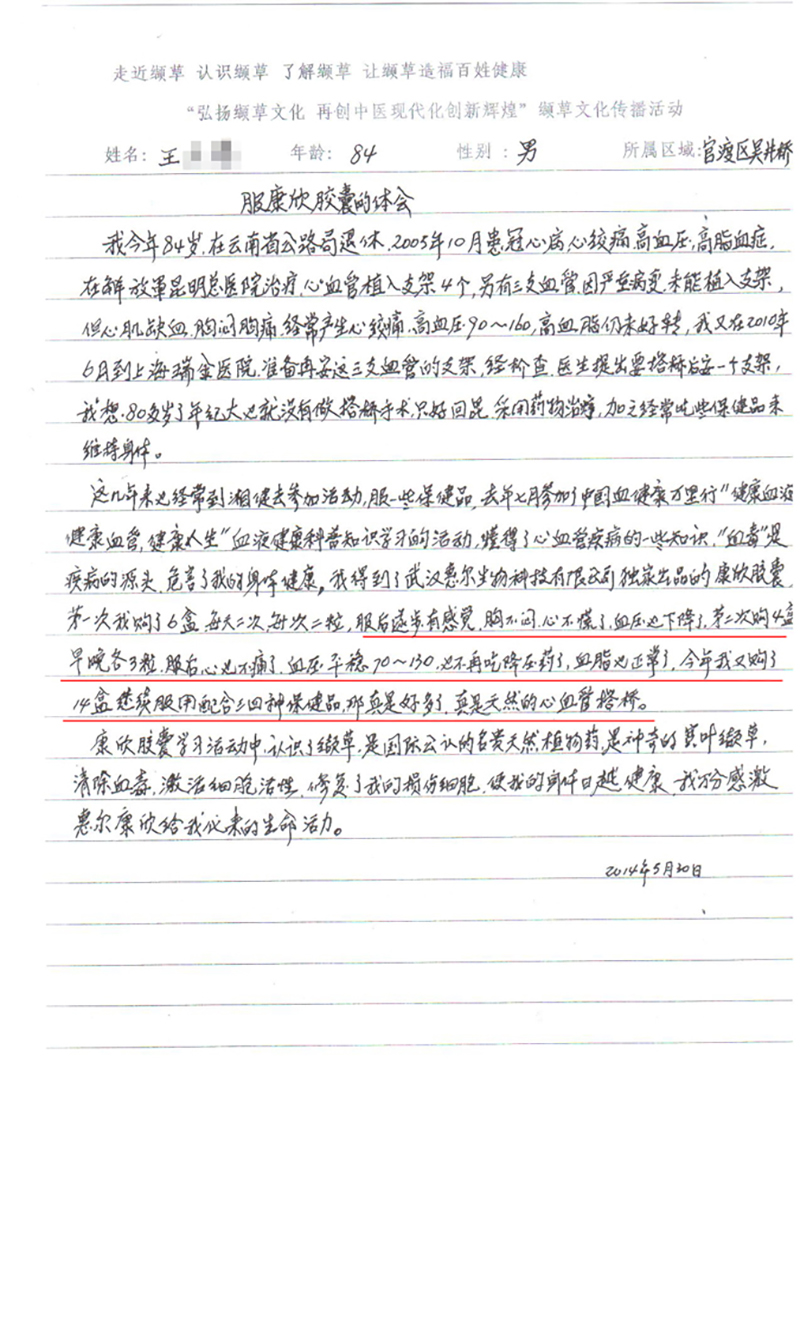 走近缬草 认识缬草 了解缬草 让缬草造福百姓健康
“弘扬缬草文化 再创中医现代化创新辉煌”缬草文化传播活动
姓名：王 年龄：84 性别：男 所属区域：官渡区吴井桥
服康欣胶囊的体会
我今年84岁，在云南省公路局退休，2005年10月患冠心病心绞痛，高血压，高脂血症，
在解放军昆明总医院治疗，心血管植入支架4个，另有三支血管，因严重病变，未能植入支架，
但心肌缺血，胸闷胸痛，经常产生心绞痛，高血压90～160，高血脂仍未好转，我又在2010年
6月到上海瑞金医院，准备再安这三支血管的支架，经检查，医生提出要搭桥后安一个支架，
我想，80多岁了年纪大也就没有做搭桥手术，只好回昆，采用药物治疗，加之经常吃些保健品来
维持身体。
这几年来也经常到湘健去参加活动，服一些保健品，去年七月参加了中国血健康万里行“健康血液
健康血管，健康人生”血液健康科普知识学习的活动，懂得了心血管疾病的一些知识，“血毒”是
疾病的源头，危害了我的身体健康，我得到了武汉惠尔生物科技有限公司独家出品的康欣胶囊，
第一次我购了6盒，每天二次，每次二粒，服后逐步有感觉，胸不闷，心不慌了，血压也下降了，第二次购4盒
早晚各3粒，服后心也不痛了，血压平稳70～130，也不再吃降压药了，血脂也正常了，今年我又购了
14盒继续服用配合三四种保健品，那真是好多了，真是天然的心血管搭桥。
康欣胶囊学习活动中，认识了缬草，是国际公认的名贵天然植物药，是神奇的宽叶缬草，
清除血毒，激活细胞活性，修复了我的损伤细胞，使我的身体日趋健康，我万分感激
惠尔康欣给我化来的生命活力。
2014年5月20日